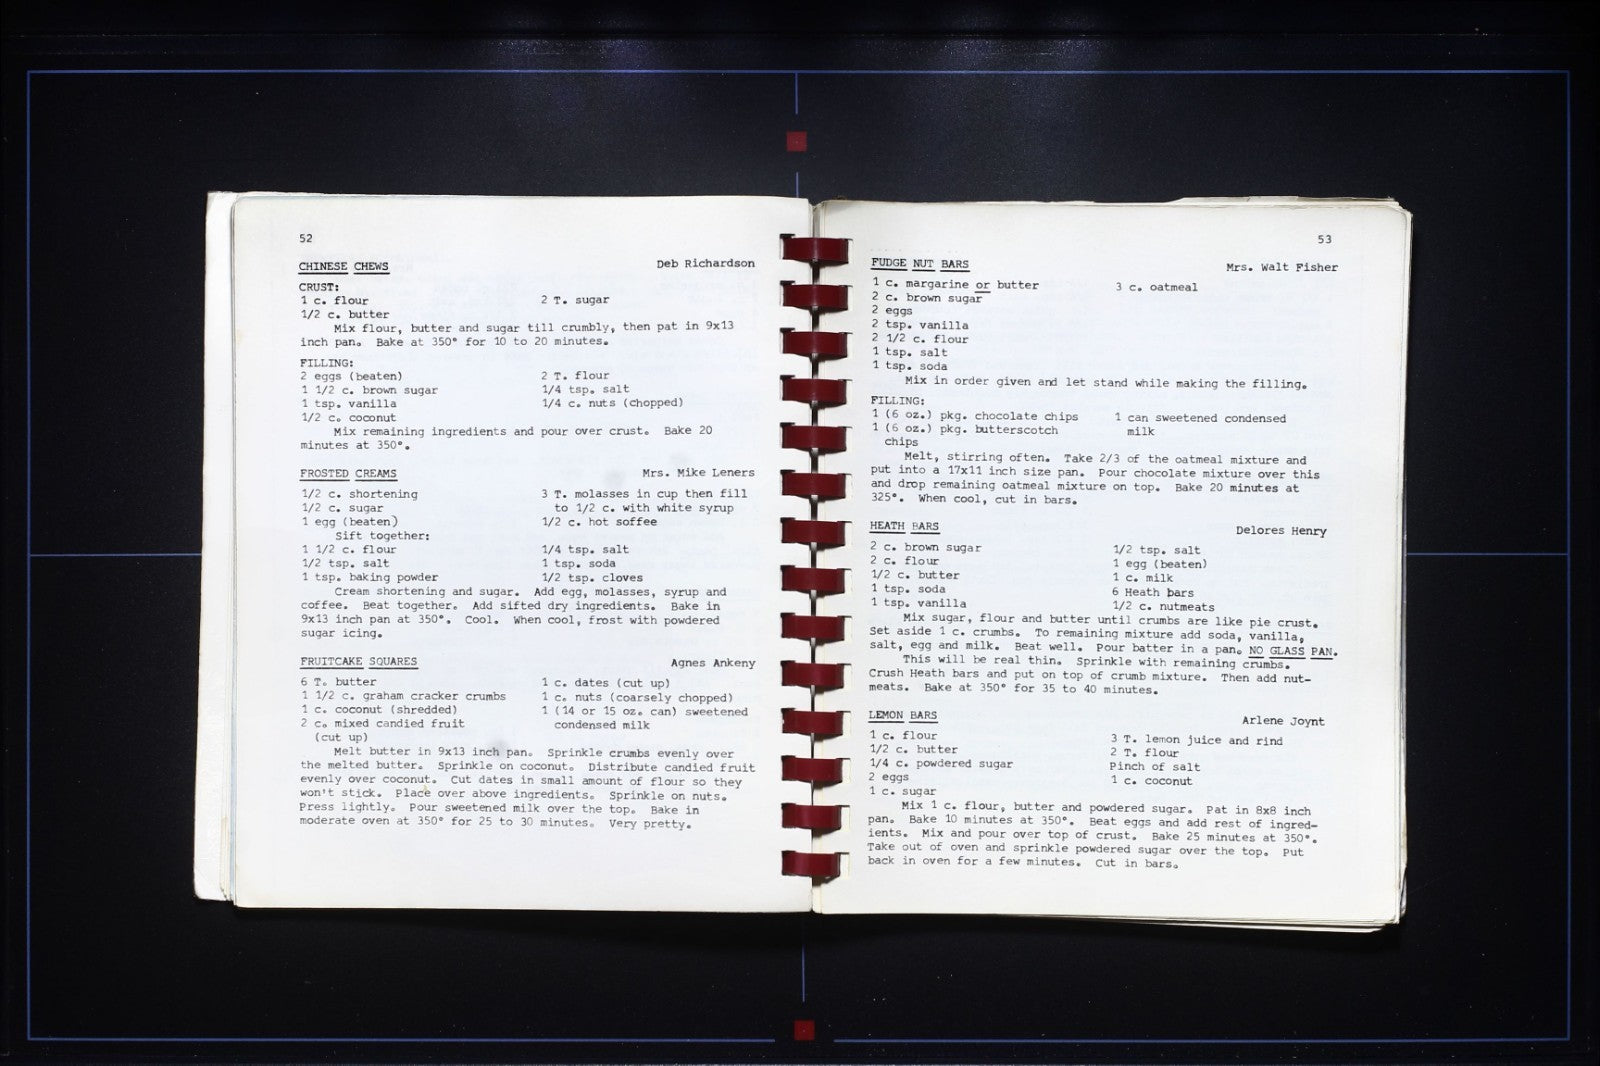 52
CHINESE CHEWS Deb Richardson
CRUST:
1 c. flour 2 T. sugar
1/2 c. butter
Mix flour, butter and sugar till crumbly, then pat in 9x13
inch pan. Bake at 350° for 10 to 20 minutes.
FILLING:
2 eggs (beaten) 2 T. flour
1 1/2 c. brown sugar 1/4 tsp. salt
1 tsp. vanilla 1/4 c. nuts (chopped)
1/2 c. coconut
Mix remaining ingredients and pour over crust. Bake 20
minutes at 350°.
FROSTED CREAMS Mrs. Mike Leners
1/2 c. shortening 3 T. molasses in cup then fill
1/2 c. sugar to 1/2 c. with white syrup
1 egg (beaten) 1/2 c. hot soffee
Sift together:
1 1/2 c. flour 1/4 tsp. salt
1/2 tsp. salt 1 tsp. soda
1 tsp. baking powder 1/2 tsp. cloves
Cream shortening and sugar. Add egg, molasses, syrup and
coffee. Beat together. Add sifted dry ingredients. Bake in
9x13 inch pan at 350°. Cool. When cool, frost with powdered
sugar icing.
FRUITCAKE SQUARES Agnes Ankeny
6 T. butter 1 c. dates (cut up)
1 1/2 c. graham cracker crumbs 1 c. nuts (coarsely chopped)
1 c. coconut (shredded) 1 (14 or 15 oz. can) sweetened
2 c. mixed candied fruit condensed milk
(cut up)
Melt butter in 9x13 inch pan. Sprinkle crumbs evenly over
the melted butter. Sprinkle on coconut. Distribute candied fruit
evenly over coconut. Cut dates in small amount of flour so they
won't stick. Place over above ingredients. Sprinkle on nuts.
Press lightly. Pour sweetened milk over the top. Bake in
moderate oven at 350° for 25 to 30 minutes. Very pretty.
53
FUDGE NUT BARS Mrs. Walt Fisher
1 c. margarine or butter 3 c. oatmeal
2 c. brown sugar
2 eggs
2 tsp. vanilla
2 1/2 c. flour
1 tsp. salt
1 tsp. soda
Mix in order given and let stand while making the filling.
FILLING:
1 (6 oz.) pkg. chocolate chips 1 can sweetened condensed
1 (6 oz.) pkg. butterscotch milk
chips
Melt, stirring often. Take 2/3 of the oatmeal mixture and
put into a 17x11 inch size pan. Pour chocolate mixture over this
and drop remaining oatmeal mixture on top. Bake 20 minutes at
325°. When cool, cut in bars.
HEATH BARS Delores Henry
2 c. brown sugar 1/2 tsp. salt
2 c. flour 1 egg (beaten)
1/2 c. butter 1 c. milk
1 tsp. soda 6 Heath bars
1 tsp. vanilla 1/2 c. nutmeats
Mix sugar, flour and butter until crumbs are like pie crust.
Set aside 1 c. crumbs. To remaining mixture add soda, vanilla,
salt, egg and milk. Beat well. Pour batter in a pan. NO GLASS PAN.
This will be real thin. Sprinkle with remaining crumbs.
Crush Heath bars and put on top of crumb mixture. Then add nut-
meats. Bake at 350° for 35 to 40 minutes.
LEMON BARS Arlene Joynt
1 c. flour 3 T. lemon juice and rind
1/2 c. butter 2 T. flour
1/4 c. powdered sugar Pinch of salt
2 eggs 1 c. coconut
1 c. sugar
Mix 1 c. flour, butter and powdered sugar. Pat in 8x8 inch
pan. Bake 10 minutes at 350°. Beat eggs and add rest of ingred-
ients. Mix and pour over top of crust. Bake 25 minutes at 350°.
Take out of oven and sprinkle powdered sugar over the top. Put
back in oven for a few minutes. Cut in bars.